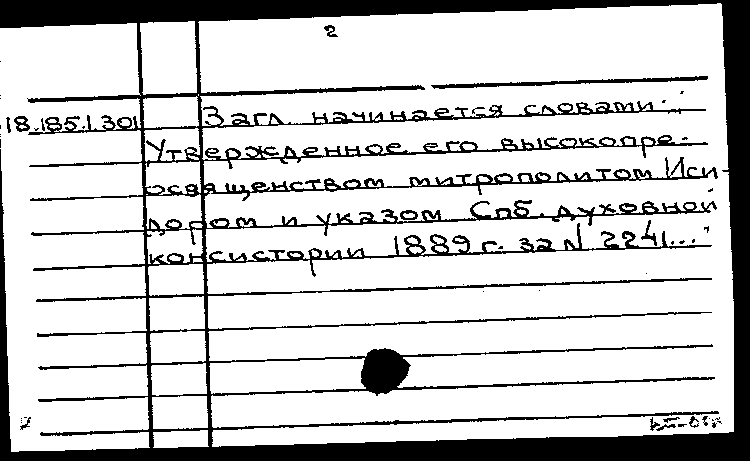 2
18.185.1.301 Загл. начинается словами:
Утвержденное его высокопре-
освященством митрополитом Иси-
дором и указом Спб. духовной
консистории 1889 г. за № 2241..."